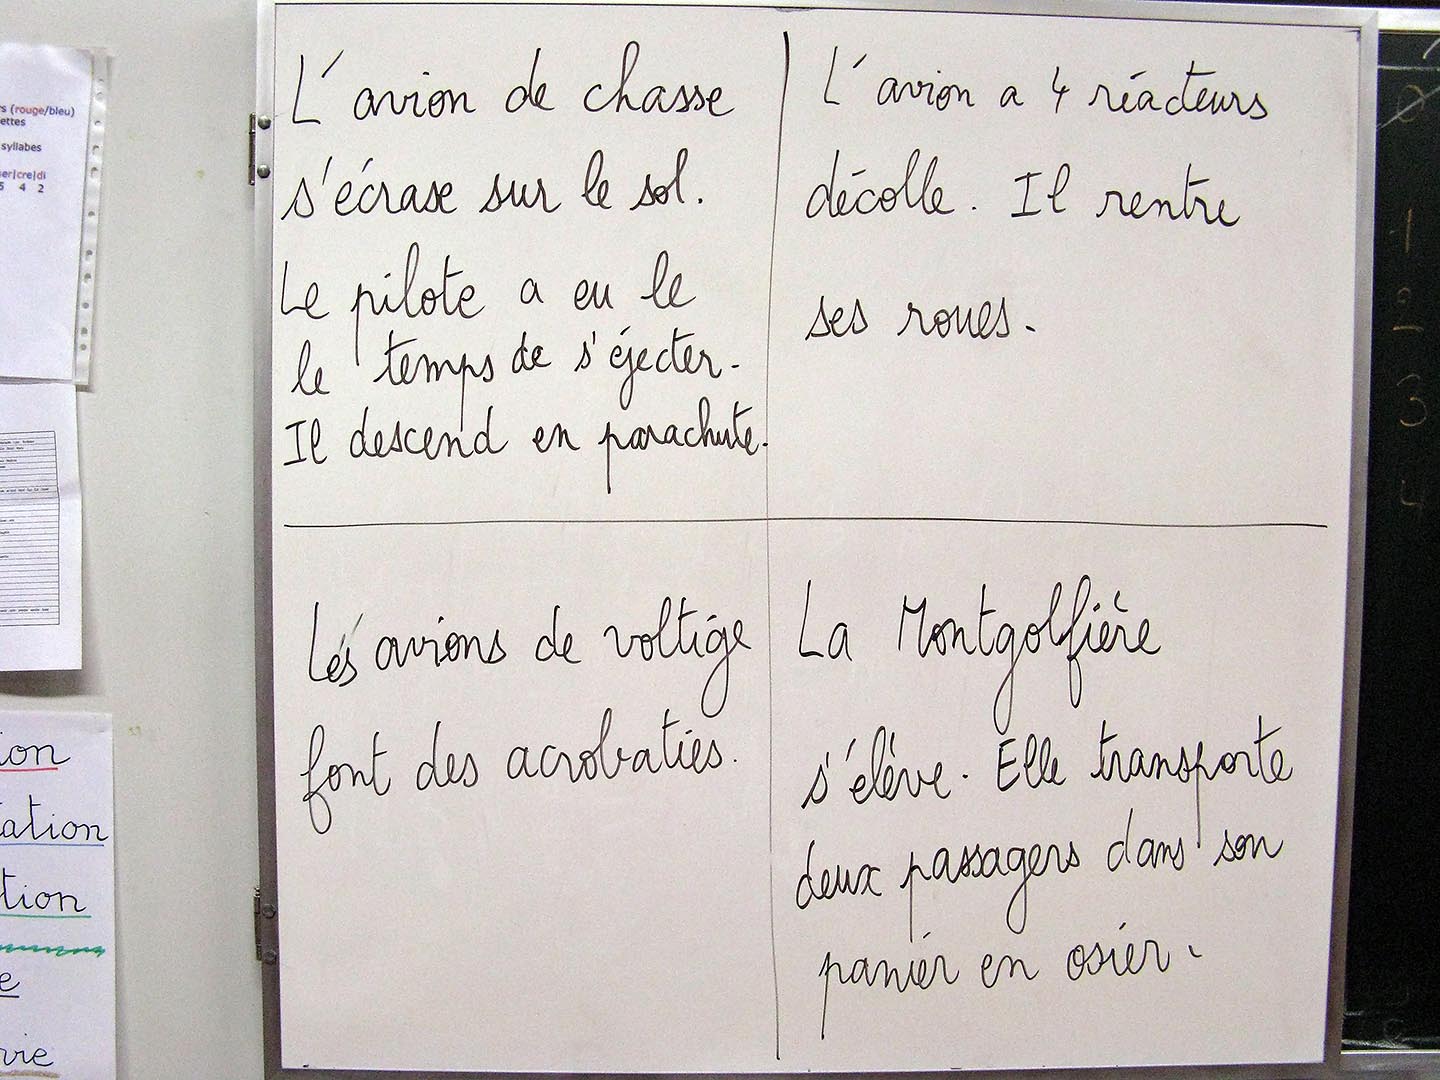 L'avion de chasse
s'écrase sur le sol.
Le pilote a eu le
le temps de s'éjecter.
Il descend en parachute.
L'avion a 4 réacteurs
décolle. Il rentre
ses roues.
Les avions de voltige
font des acrobaties.
La Montgolfière
s'elève. Elle transporte
deux passagers dans son
panier en osier.
(rouge/bleu)
ettes
syllabes
er|cre|di
5 4 2
ion
tation
tion
e
vie
1
2
3
4